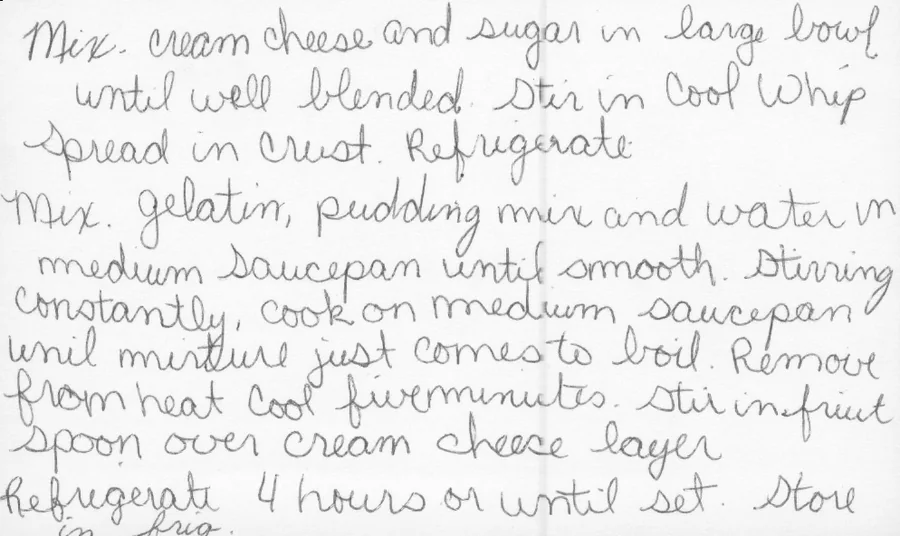 Mix. cream cheese and sugar in large bowl
until well blended. Stir in Cool Whip
Spread in Crust. Refrigerate
Mix. gelatin, pudding mix and water in
medium saucepan until smooth. Stirring
constantly, cook on medium saucepan
unil mixture just comes to boil. Remove
from heat Cool five minutes. Stir in fruit
spoon over cream cheese layer
Refrigerate 4 hours or until set. Store
in frig.